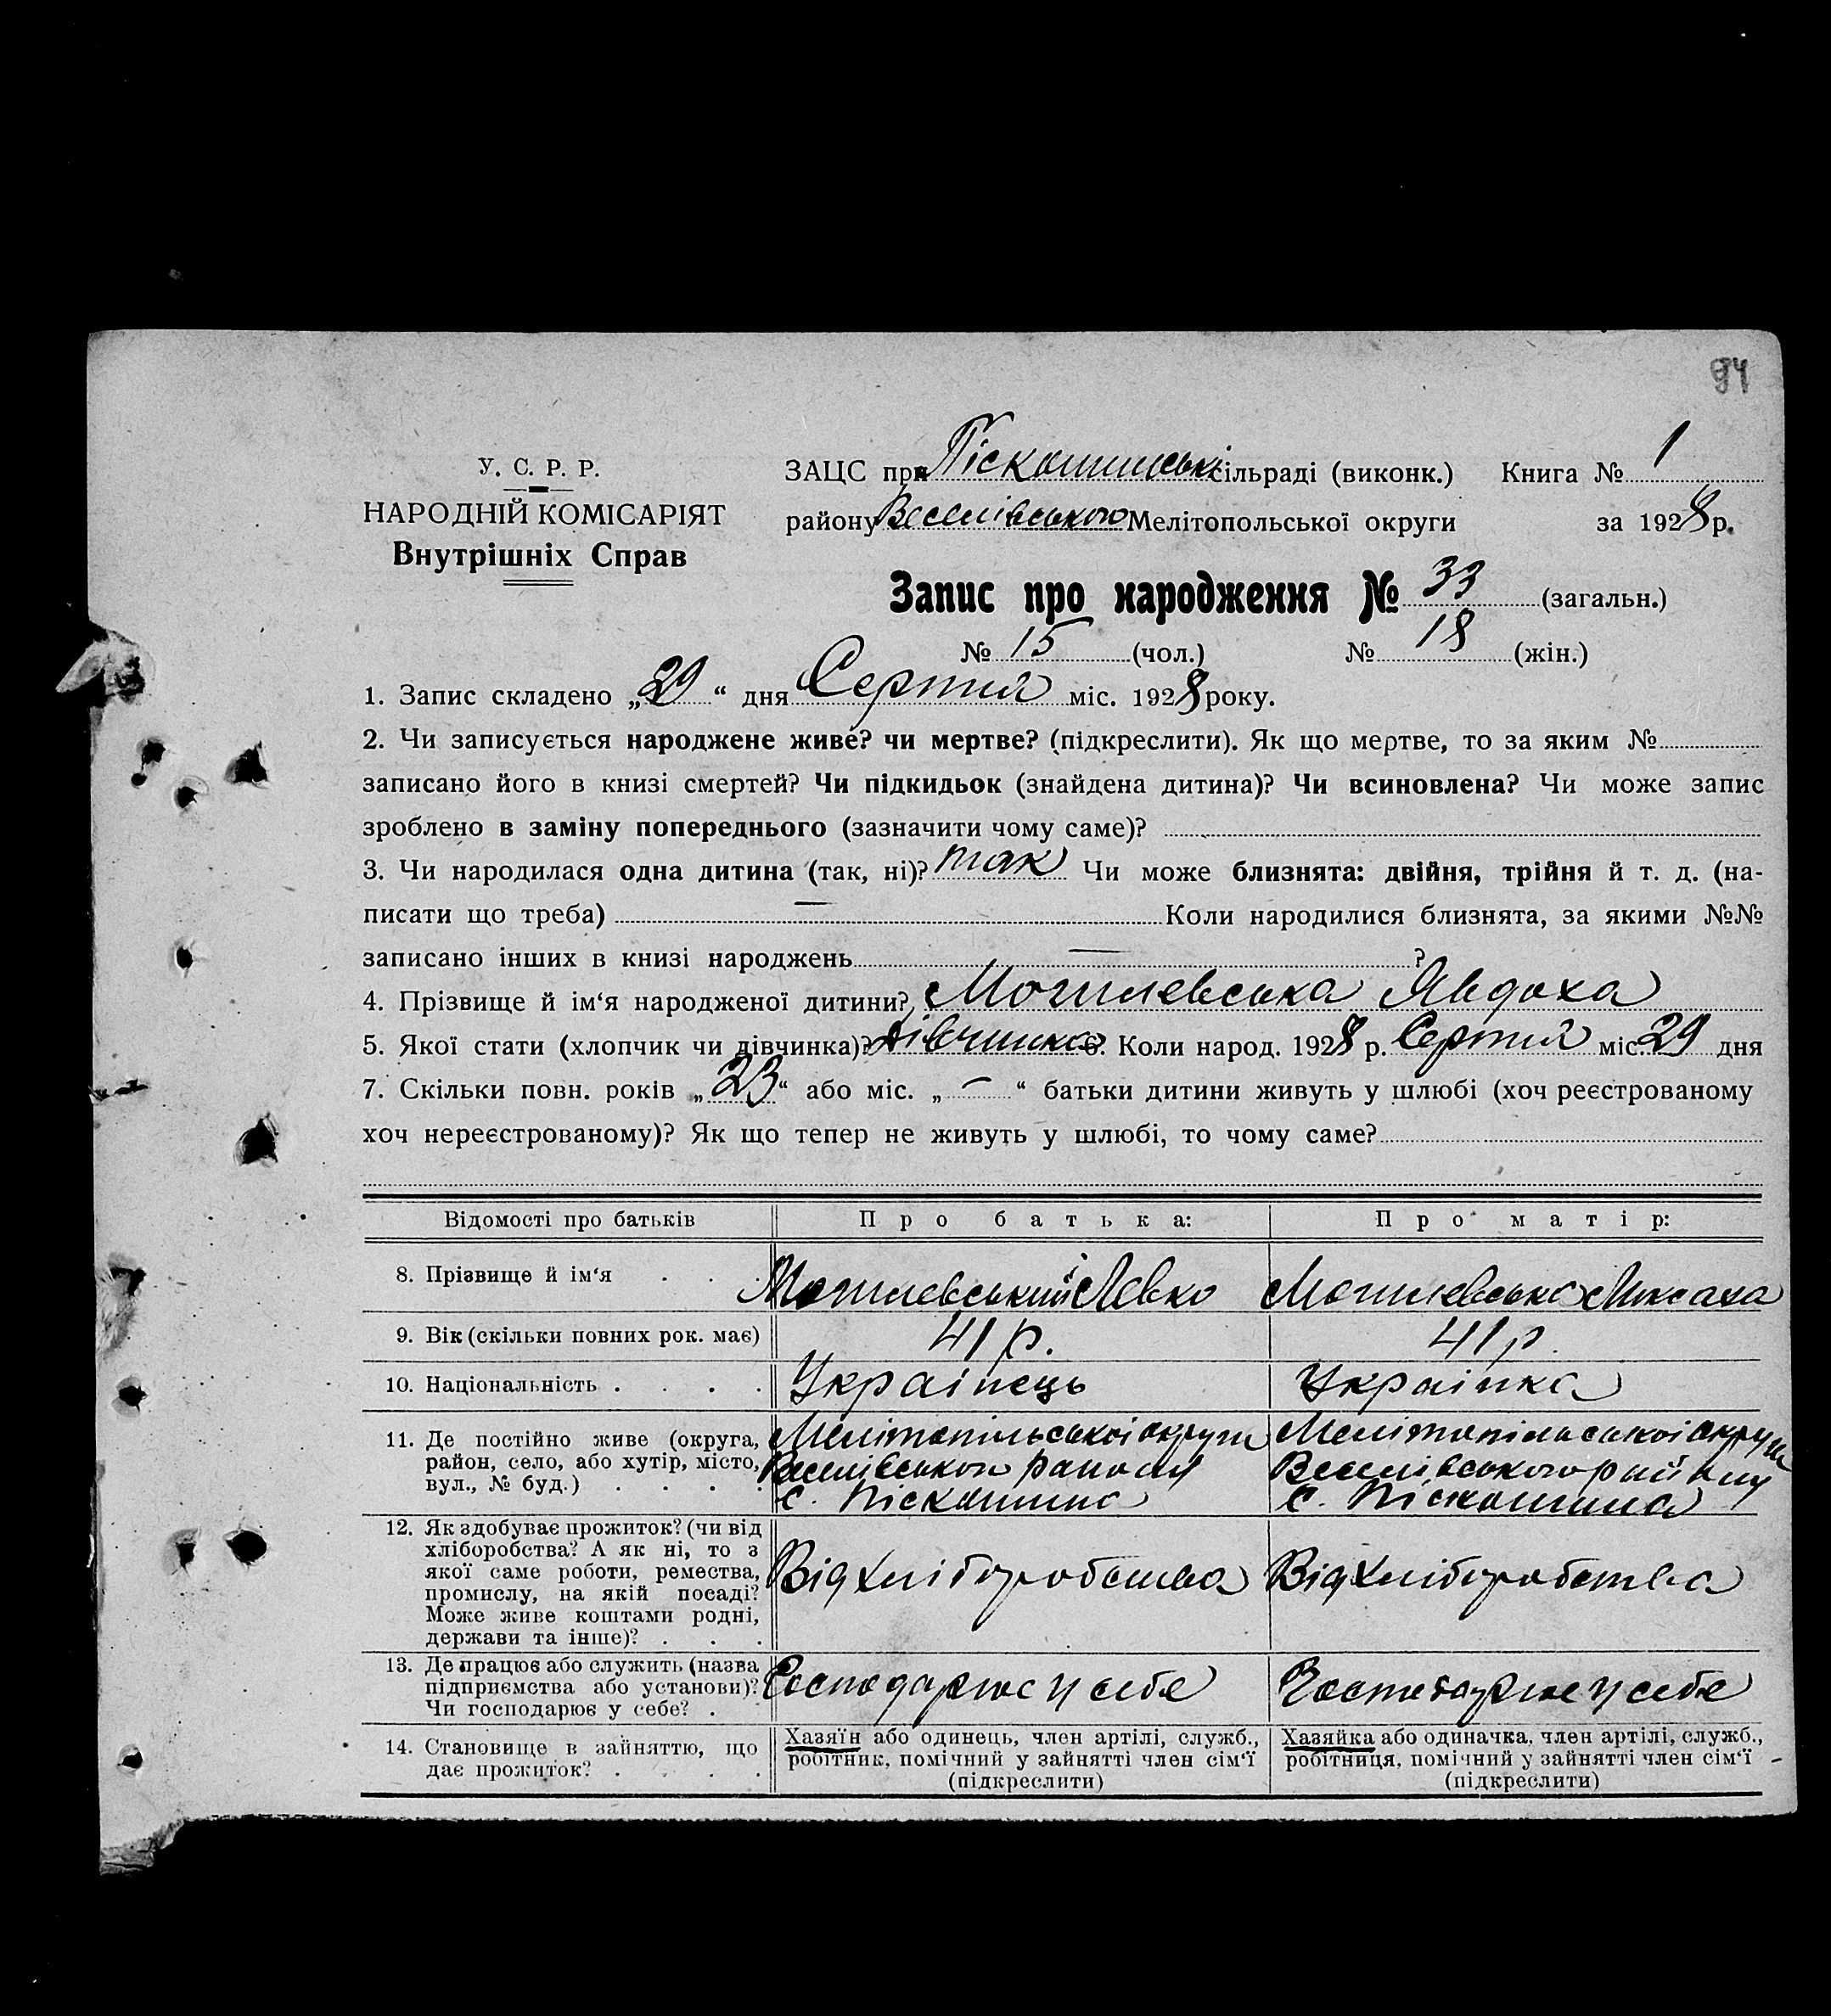 94
У. С. Р. Р.
НАРОДНІЙ КОМІСАРІЯТ
Внутрішніх Справ
ЗАЦС при Піскошинські сільраді (виконк.) Книга № 1
району Веселівського Мелітопольської округи за 1928 р.
Запис про народження № 33 (загальн.)
№ 15 (чол.) № 18 (жін.)
1. Запис складено „29“ дня Серпня міс. 1928 року.
2. Чи записується народжене живе? чи мертве? (підкреслити). Як що мертве, то за яким №
записано його в книзі смертей? Чи підкидьок (знайдена дитина)? Чи всиновлена? Чи може запис
зроблено в заміну попереднього (зазначити чому саме)?
3. Чи народилася одна дитина (так, ні)? так Чи може близнята: двійня, трійня й т. д. (на-
писати що треба) — Коли народилися близнята, за якими №№
записано інших в книзі народжень — ?
4. Прізвище й ім‘я народженої дитини? Могилевська Явдоха
5. Якої стати (хлопчик чи дівчинка)? дівчинка 6. Коли народ. 1928 р. Серпня міс. 29 дня
7. Скільки повн. років „23“ або міс. „—“ батьки дитини живуть у шлюбі (хоч реєстрованому
хоч нереєстрованому)? Як що тепер не живуть у шлюбі, то чому саме?
Відомості про батьків Про батька: Про матір:
8. Прізвище й ім‘я . . . Могилевський Левко Могилевська
9. Вік (скільки повних рок. має) 41 р. 41 р.
10. Національність . . . . Українець Українка
11. Де постійно живе (округа,
район, село, або хутір, місто,
вул., № буд.) . . . .
Мелітопільської округи
Веселівського району
с. Піскошина
Мелітопільської округи
Веселівського району
с. Піскошина
12. Як здобуває прожиток? (чи від
хліборобства? А як ні, то з
якої саме роботи, ремества,
промислу, на якій посаді?
Може живе коштами родні,
держави та інше)? . . .
Від хліборобства Від хліборобства
13. Де працює або служить (назва
підприємства або установи)?
Чи господарює у себе? .
Господарює у себе Господарює у себе
14. Становище в зайняттю, що
дає прожиток? . . . .
Хазяїн або одинець, член артілі, служб.,
робітник, помічний у зайнятті член сім‘ї
(підкреслити)
Хазяйка або одиначка, член артілі, служб.,
робітниця, помічний у зайнятті член сім‘ї
(підкреслити)